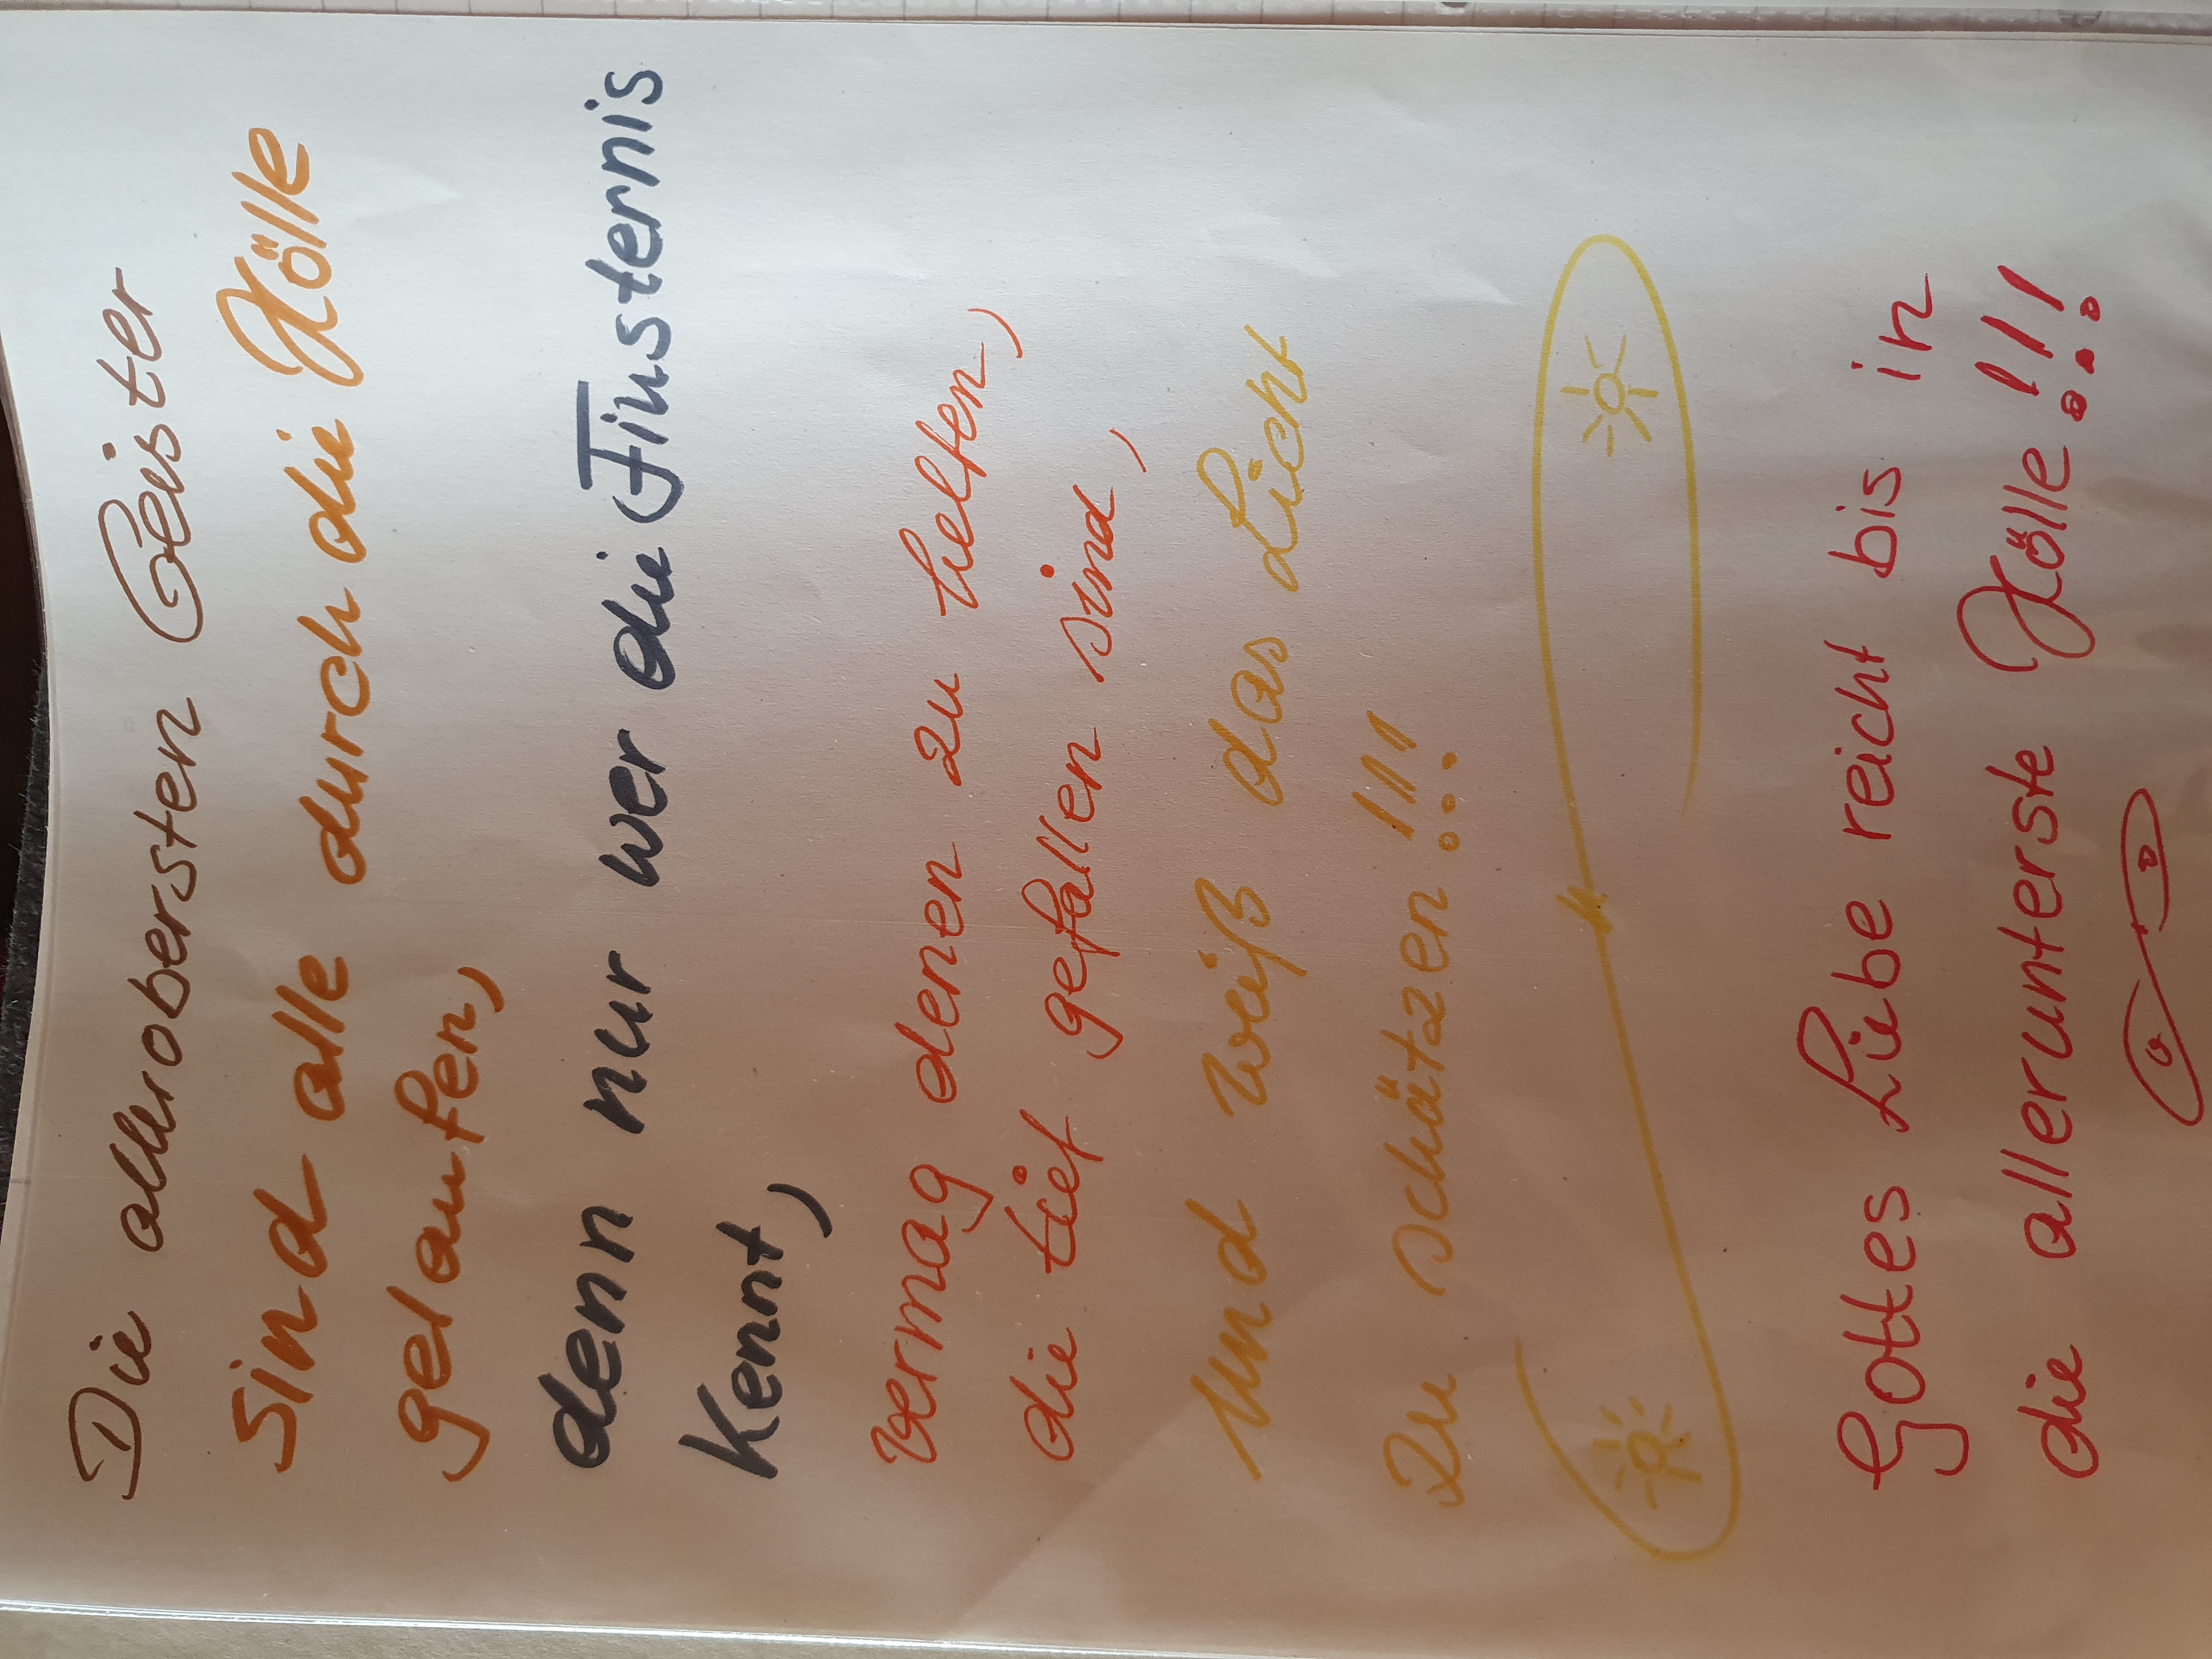 Die allerobersten Geister
sind alle durch die Hölle
gelaufen,
denn nur wer die Finsternis
Kennt,
vermag denen zu helfen,
die tief gefallen sind,
und weiß das Licht
zu schätzen!!!
Gottes Liebe reicht bis in
die allerunterste Hölle!!!